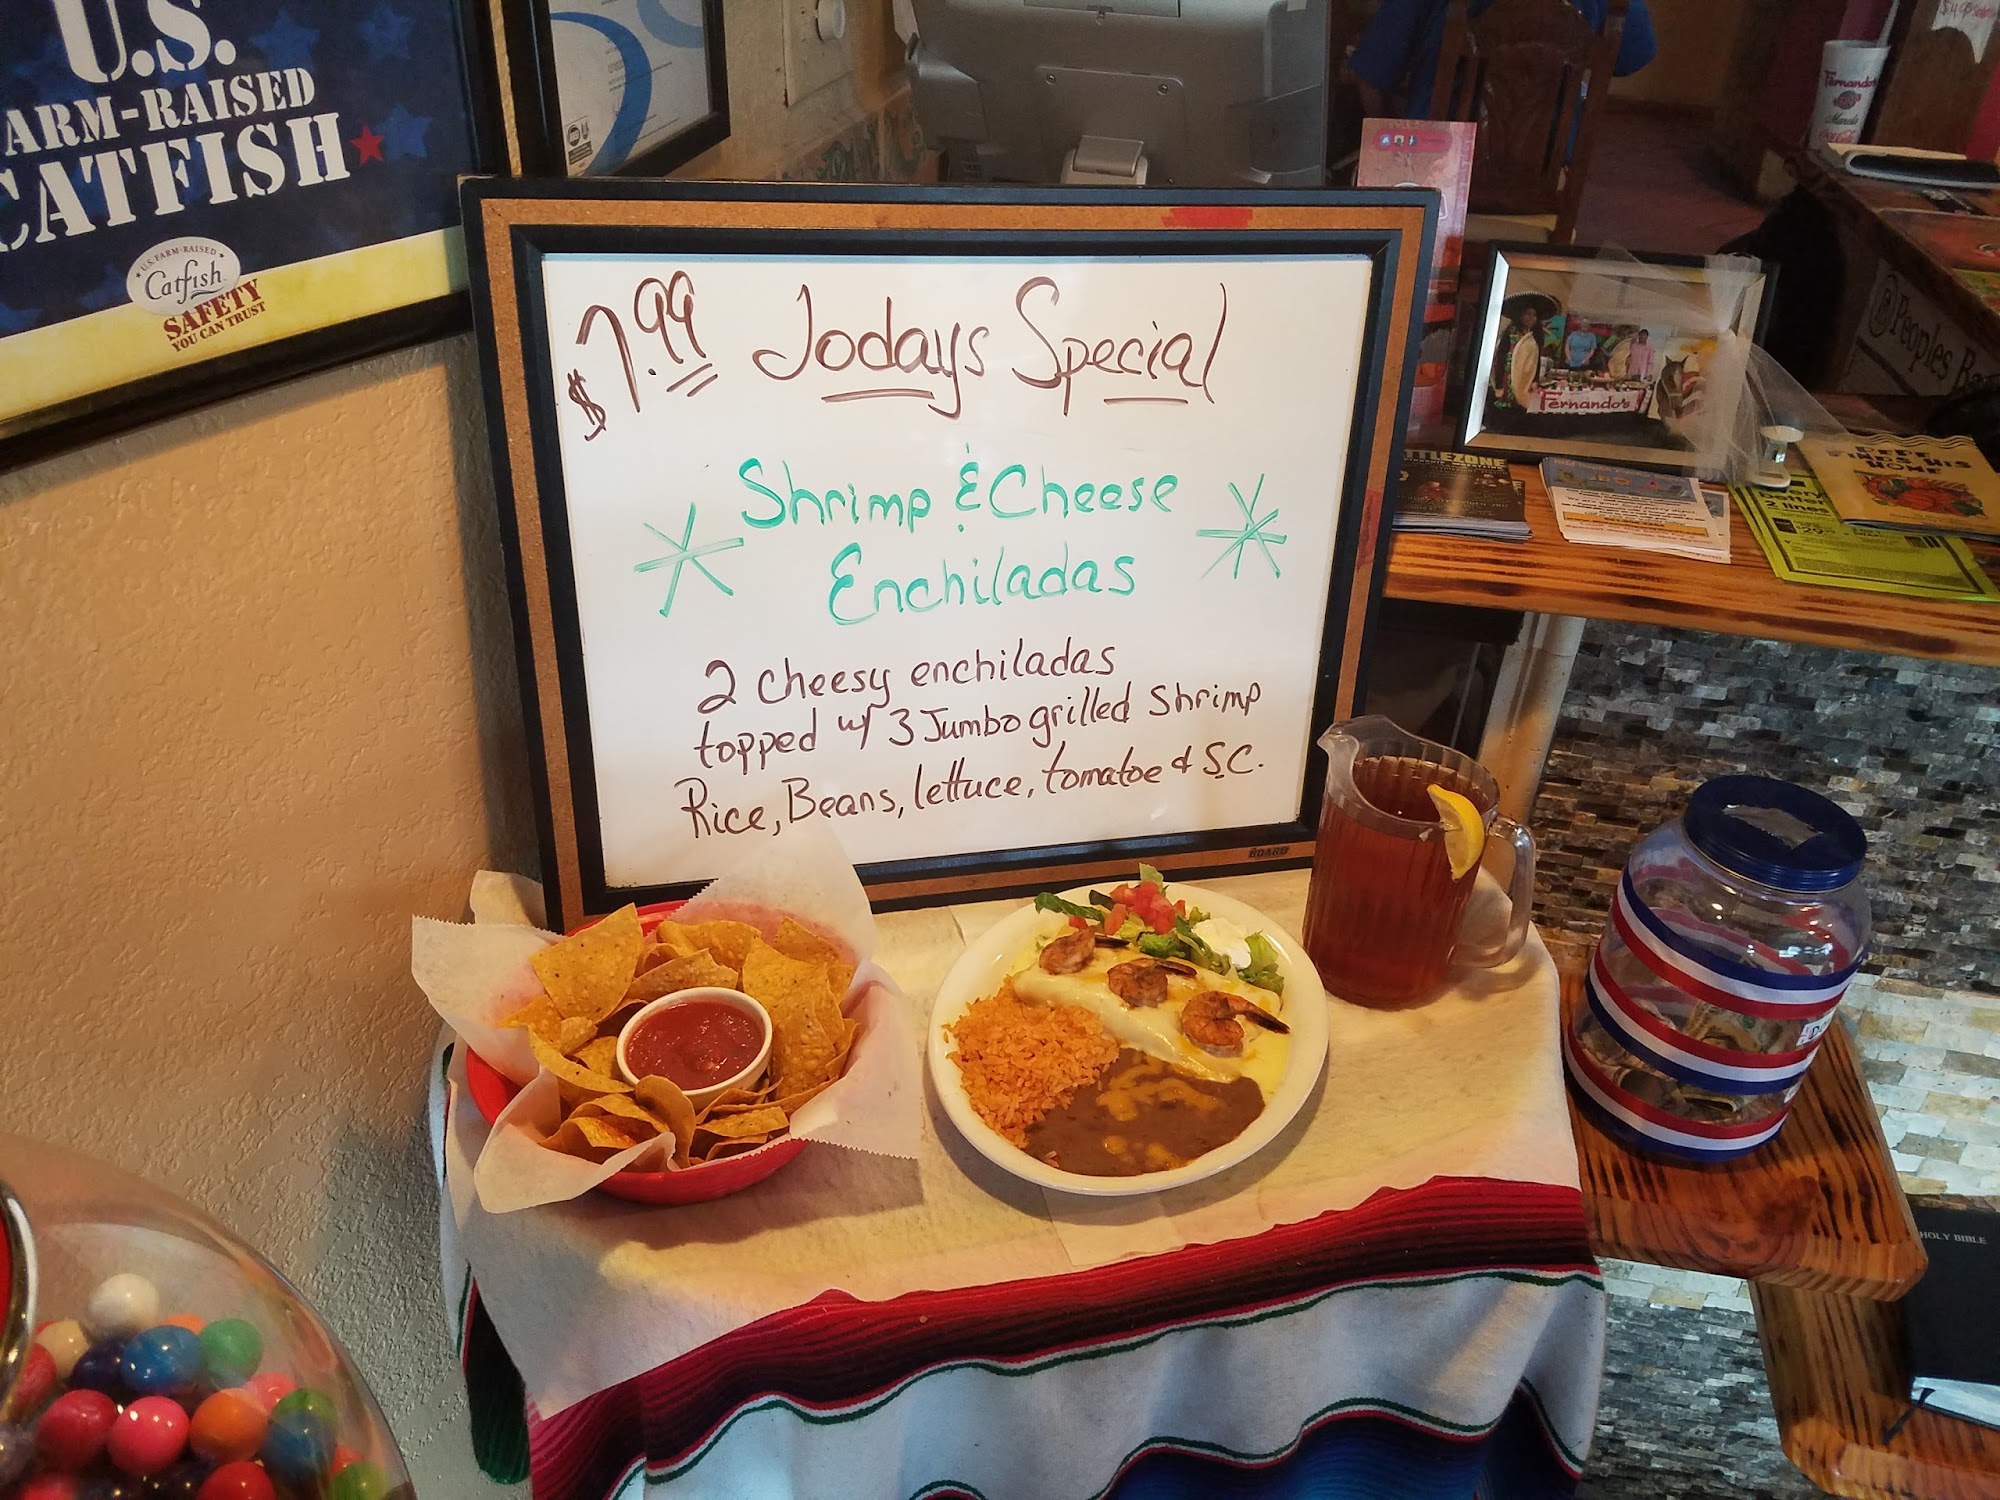 U.S.
FARM-RAISED
CATFISH
U.S. FARM-RAISED
Catfish
SAFETY
YOU CAN TRUST
$7.99 Todays Special
Shrimp & Cheese
Enchiladas
2 cheesy enchiladas
topped w/ 3 Jumbo grilled shrimp
Rice, Beans, lettuce, tomatoe & S.C.
BOARD
Fernando's
Fernando's
Coca-Cola
Peoples
TTLEZONE
PEPE
FINDS HIS
HOME
2 lines
HOLY BIBLE